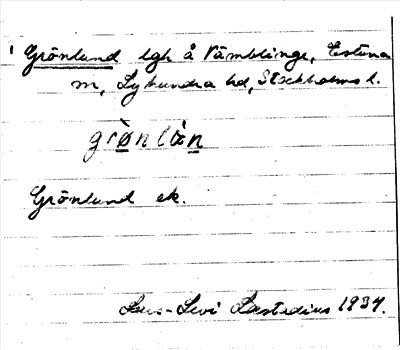 Grönlund lgh å Vämblinge, Estuna
sn, Lyhundra hd, Stockholms l.
grø̀nlàn
Grönlund ek.
Lars-Levi Læstadius 1934.